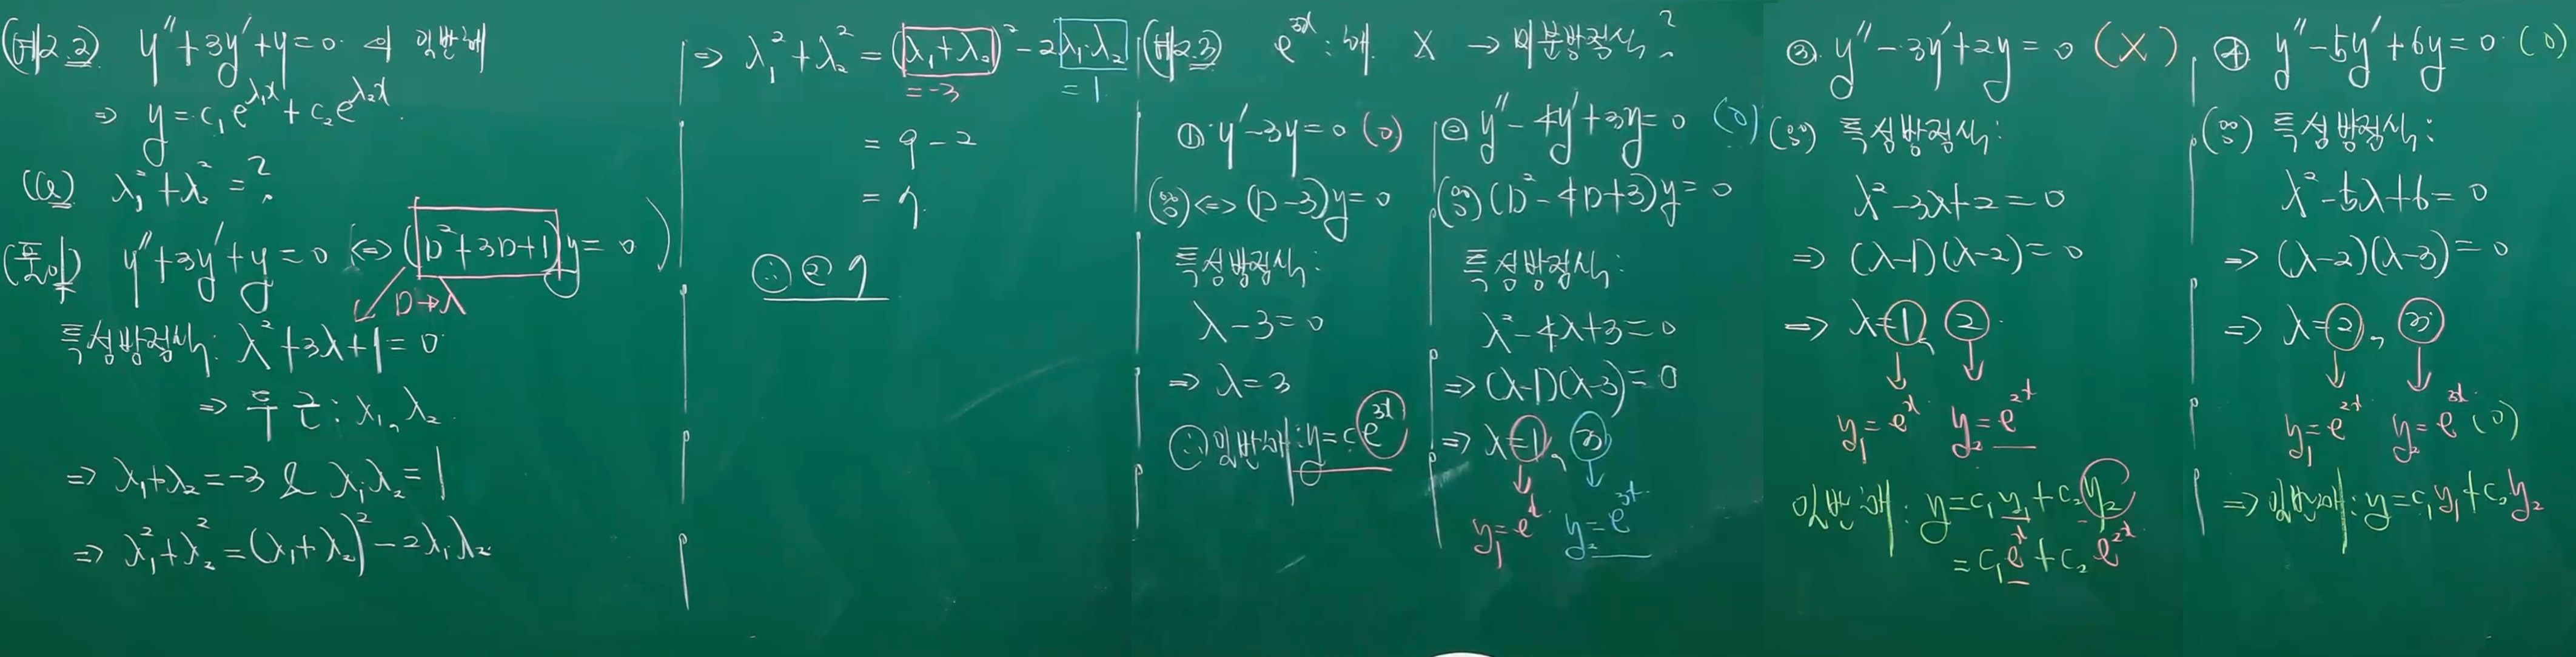 (예2.2) y″+3y′+y=0 의 일반해
⇒ y=c₁e^{λ₁x}+c₂e^{λ₂x}.
(Q) λ₁²+λ₂²=?
(풀이) y″+3y′+y=0 (⇔(D²+3D+1)y=0)
D→λ
특성방정식: λ²+3λ+1=0
⇒ 두 근: λ₁, λ₂.
⇒ λ₁+λ₂=-3 & λ₁λ₂=1
⇒ λ₁²+λ₂²=(λ₁+λ₂)²-2λ₁λ₂
⇒ λ₁²+λ₂²=(λ₁+λ₂)²-2λ₁·λ₂
=-3 =1
= 9-2
= 7.
∴ ② 7
(예2.3) e^{3x}: 해 X → 미분방정식?
① y′-3y=0 (O)
(∵) ⇔ (D-3)y=0
특성방정식:
λ-3=0
⇒ λ=3
∴ 일반해: y=ce^{3x}
② y″-4y′+3y=0 (O)
(∵) (D²-4D+3)y=0
특성방정식:
λ²-4λ+3=0
⇒ (λ-1)(λ-3)=0
⇒ λ=1, 3
y₁=e^x y₂=e^{3x}
③ y″-3y′+2y=0 (X)
(∵) 특성방정식:
λ²-3λ+2=0
⇒ (λ-1)(λ-2)=0
⇒ λ=1, 2
y₁=e^x y₂=e^{2x}
일반해: y=c₁y₁+c₂y₂
=c₁e^x+c₂e^{2x}
④ y″-5y′+6y=0 (O)
(∵) 특성방정식:
λ²-5λ+6=0
⇒ (λ-2)(λ-3)=0
⇒ λ=2, 3
y₁=e^{2x} y₂=e^{3x} (O)
⇒ 일반해: y=c₁y₁+c₂y₂